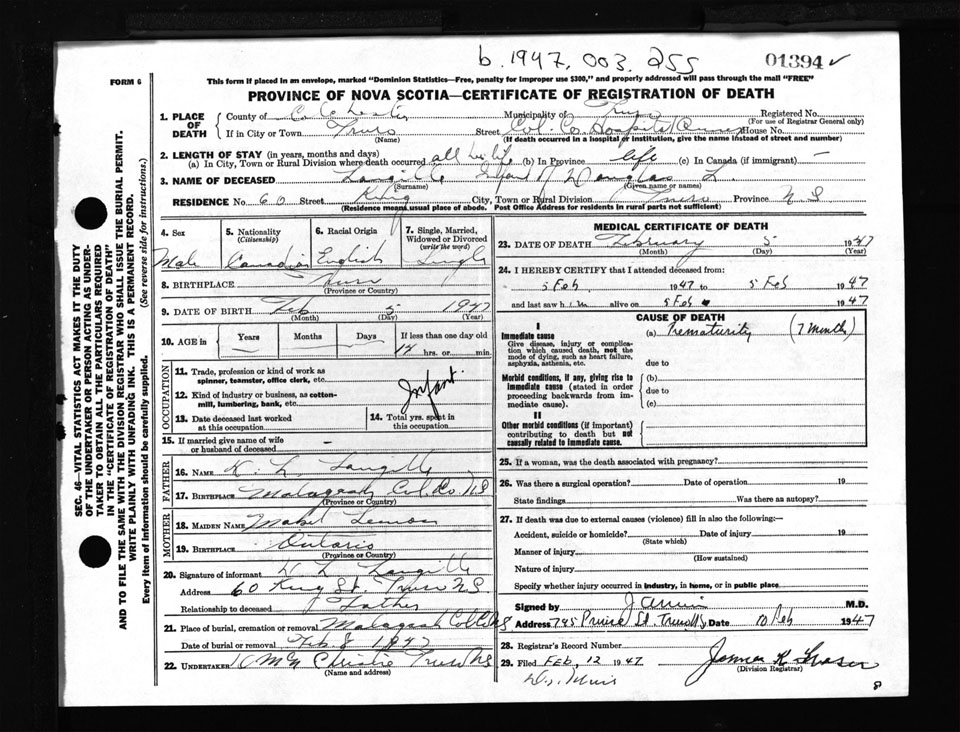 b. 1947. 003. 255
01394
FORM 6
This form if placed in an envelope, marked "Dominion Statistics—Free, penalty for improper use $300," and properly addressed will pass through the mail "FREE"
PROVINCE OF NOVA SCOTIA—CERTIFICATE OF REGISTRATION OF DEATH
1. PLACE OF DEATH
County of Colchester Municipality of Truro Registered No.
(For use of Registrar General only)
If in City or Town Truro Street Col. Co. Hospital House No.
(Name) (If death occurred in a hospital or institution, give the name instead of street and number)
2. LENGTH OF STAY (in years, months and days)
(a) In City, Town or Rural Division where death occurred all his life (b) In Province life (c) In Canada (if immigrant) —
3. NAME OF DECEASED Langille Infant of Douglas L.
(Surname) (Given name or names)
RESIDENCE No. 60 Street King City, Town or Rural Division Truro Province N S
(Residence means usual place of abode. Post Office Address for residents in rural parts not sufficient)
SEC. 46—VITAL STATISTICS ACT MAKES IT THE DUTY
OF THE UNDERTAKER OR PERSON ACTING AS UNDER-
TAKER TO OBTAIN ALL THE PARTICULARS REQUIRED
IN THE "CERTIFICATE OF REGISTRATION OF DEATH"
AND TO FILE THE SAME WITH THE DIVISION REGISTRAR WHO SHALL ISSUE THE BURIAL PERMIT.
WRITE PLAINLY WITH UNFADING INK. THIS IS A PERMANENT RECORD.
Every item of information should be carefully supplied. (See reverse side for instructions.)
4. Sex
Male
5. Nationality
(Citizenship)
Canadian
6. Racial Origin
English
7. Single, Married,
Widowed or Divorced
(write the word)
Single
8. BIRTHPLACE Truro
(Province or Country)
9. DATE OF BIRTH Feb 5 1947
(Month) (Day) (Year)
10. AGE in Years Months Days If less than one day old
14 hrs. or min.
OCCUPATION
11. Trade, profession or kind of work as
spinner, teamster, office clerk, etc.
Infant
12. Kind of industry or business, as cotton-
mill, lumbering, bank, etc.
13. Date deceased last worked
at this occupation
14. Total yrs. spent in
this occupation
15. If married give name of wife
or husband of deceased —
FATHER
16. NAME D. L. Langille
17. BIRTHPLACE Malagash Col. Co. N S
(Province or Country)
MOTHER
18. MAIDEN NAME Mabel Lemon
19. BIRTHPLACE Ontario
(Province or Country)
20. Signature of informant D L Langille
Address 60 King St. Truro N.S.
Relationship to deceased Father
21. Place of burial, cremation or removal Malagash Col Co NS
Date of burial or removal Feb 8 1947
22. UNDERTAKER Christie Truro NS
(Name and address)
MEDICAL CERTIFICATE OF DEATH
23. DATE OF DEATH February 5 1947
(Month) (Day) (Year)
24. I HEREBY CERTIFY that I attended deceased from:
5 Feb 1947 to 5 Feb 1947
and last saw him alive on 5 Feb 1947
CAUSE OF DEATH
I
Immediate cause
Give disease, injury or complica-
tion which caused death, not the
mode of dying, such as heart failure,
asphyxia, asthenia, etc.
(a) Prematurity (7 months)
due to
Morbid conditions, if any, giving rise to
immediate cause (stated in order
proceeding backwards from im-
mediate cause).
(b)
due to
(c)
II
Other morbid conditions (if important)
contributing to death but not
causally related to immediate cause.
25. If a woman, was the death associated with pregnancy?
26. Was there a surgical operation? Date of operation 19
State findings Was there an autopsy?
27. If death was due to external causes (violence) fill in also the following:—
Accident, suicide or homicide? Date of injury 19
(State which)
Manner of injury
(How sustained)
Nature of injury
Specify whether injury occurred in industry, in home, or in public place
Signed by M.D.
Address 795 Prince St. Truro NS Date 10 Feb 1947
28. Registrar's Record Number
29. Filed FEB. 12 1947 James R. Fraser
(Division Registrar)
8